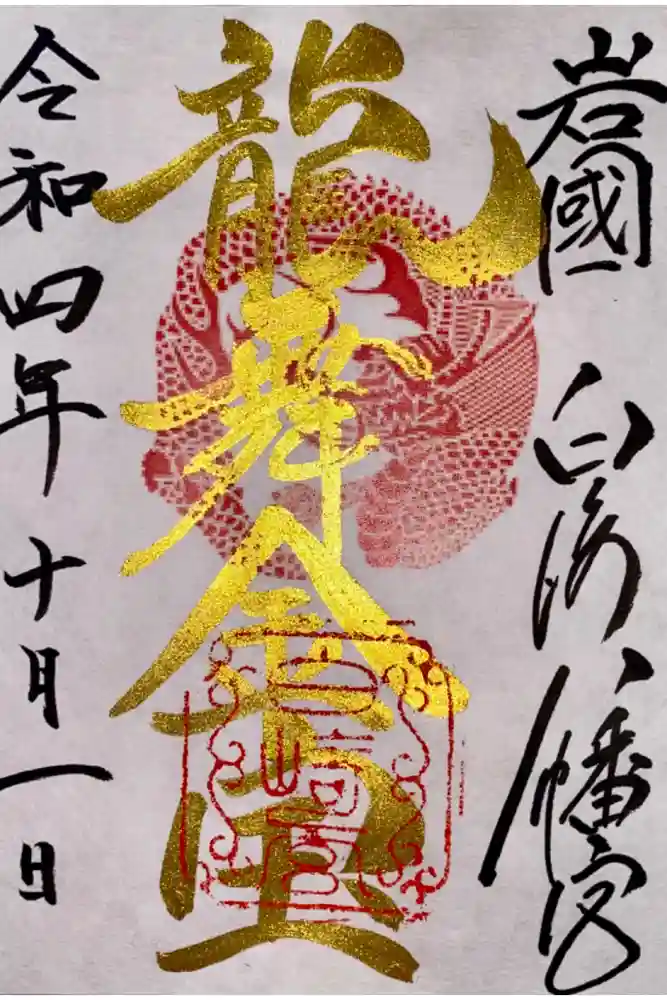 岩國 白崎八幡宮
龍舞金
令和四年十月一日